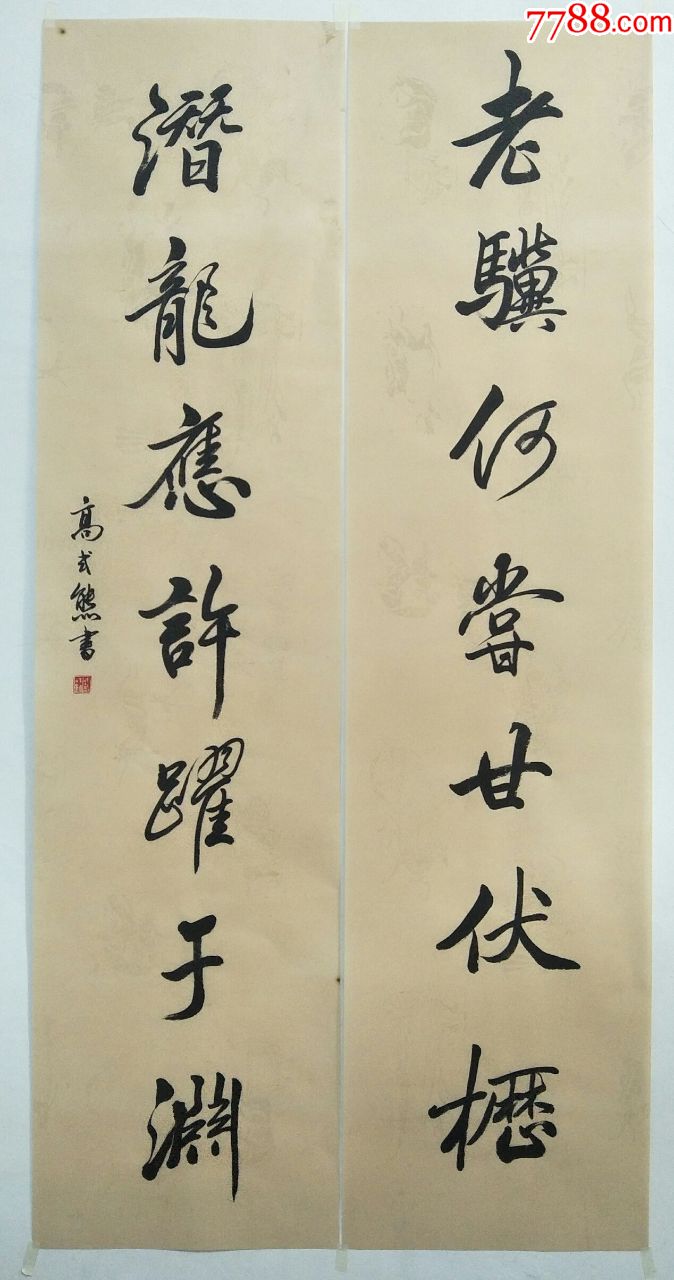 7788.com
老驥何嘗甘伏櫪
潛龍應許躍于淵
高式熊書